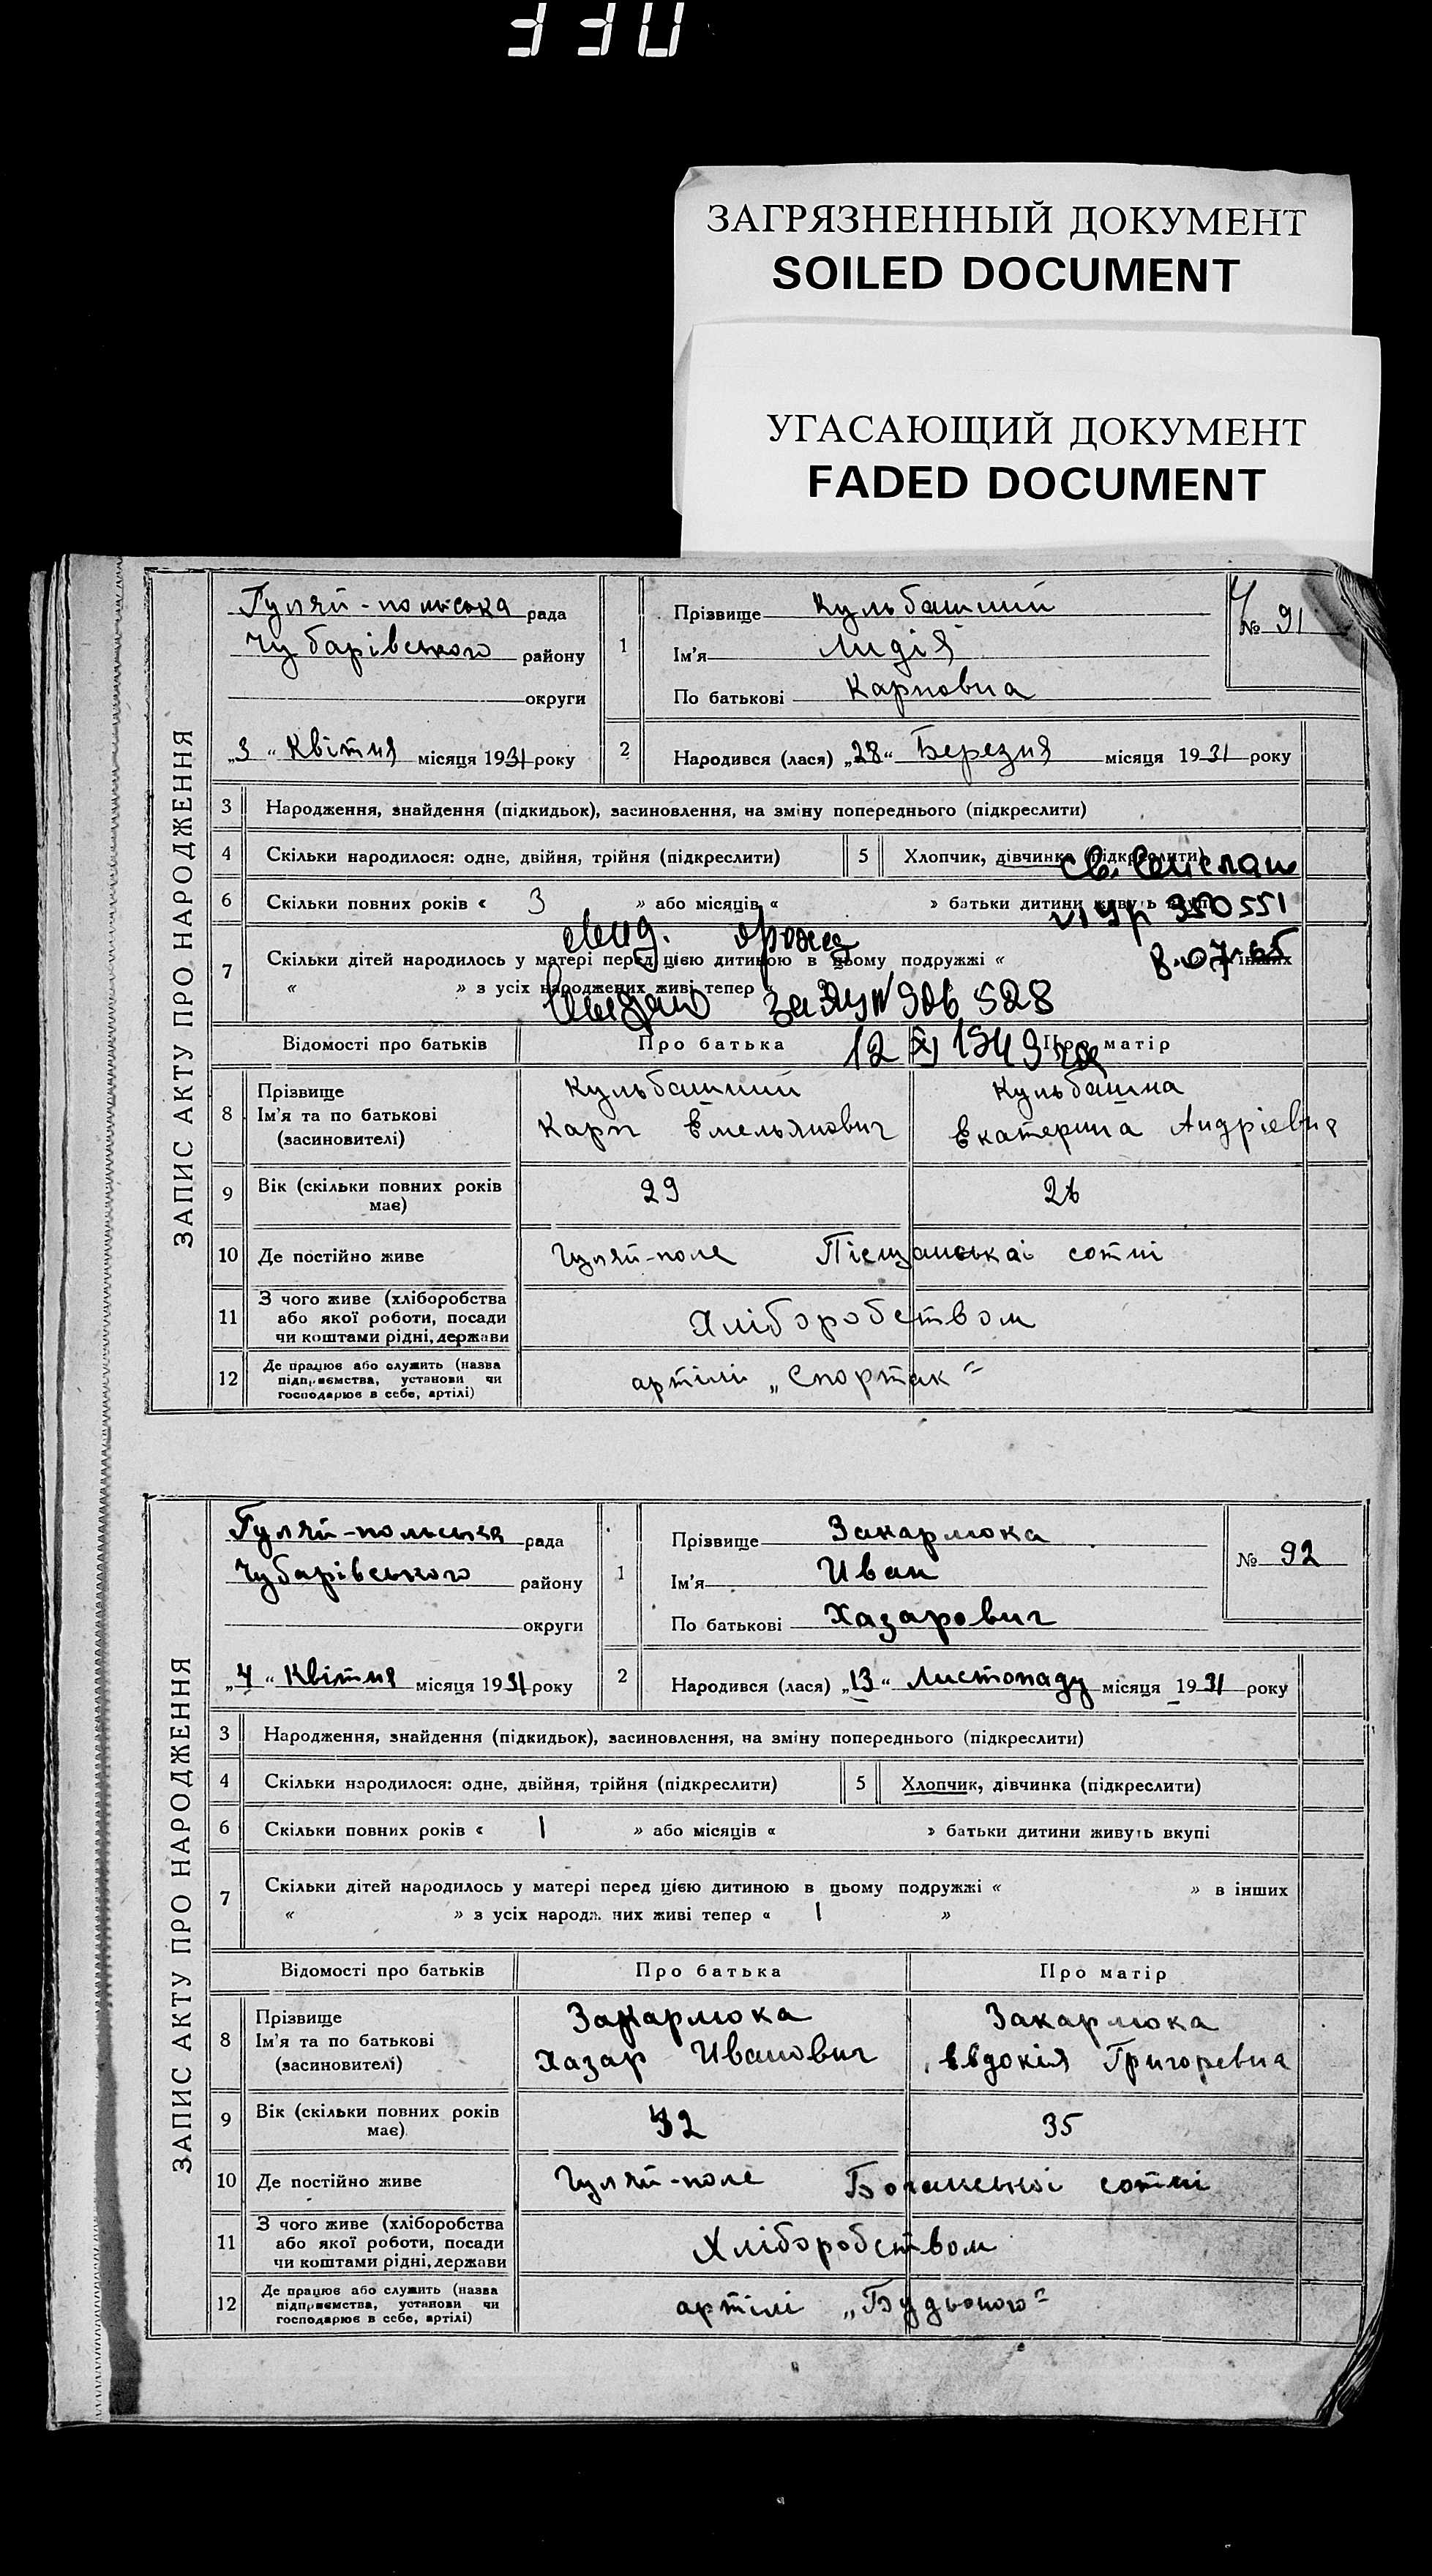 330
ЗАГРЯЗНЕННЫЙ ДОКУМЕНТ
SOILED DOCUMENT
УГАСАЮЩИЙ ДОКУМЕНТ
FADED DOCUMENT
ЗАПИС АКТУ ПРО НАРОДЖЕННЯ
Гуляй-польська рада
Чубарівського району
округи
„3“ Квітня місяця 1931 року
1 Прізвище Кульбашний
Ім'я Лидія
По батькові Карповна
№ 91
2 Народився (лася) „28“ Березня місяця 1931 року
3 Народження, знайдення (підкидьок), засиновлення, на зміну попереднього (підкреслити)
4 Скільки народилося: одне, двійня, трійня (підкреслити) 5 Хлопчик, дівчинка (підкреслити)
6 Скільки повних років « 3 » або місяців « » батьки дитини живуть вкупі
350551
8.07.65
7 Скільки дітей народилось у матері перед цією дитиною в цьому подружжі « » в інших
« » з усіх народжених живі тепер «
906528
12 XI 1949
Відомості про батьків Про батька Про матір
8 Прізвище
Ім'я та по батькові
(засиновителі)
Кульбашний
Карп Емельянович
Кульбашна
Екатерина Андріевна
9 Вік (скільки повних років має) 29 26
10 Де постійно живе Гуляй-поле Піщанської сотні
11 З чого живе (хліборобства
або якої роботи, посади
чи коштами рідні, держави
Хліборобством
12 Де працює або служить (назва
підприємства, установи чи
господарює в себе, артілі)
артілі „Спортак“
ЗАПИС АКТУ ПРО НАРОДЖЕННЯ
Гуляй-польська рада
Чубарівського району
округи
„4“ Квітня місяця 1931 року
1 Прізвище Закарлюка
Ім'я Иван
По батькові Хазарович
№ 92
2 Народився (лася) „13“ Листопаду місяця 1931 року
3 Народження, знайдення (підкидьок), засиновлення, на зміну попереднього (підкреслити)
4 Скільки народилося: одне, двійня, трійня (підкреслити) 5 Хлопчик, дівчинка (підкреслити)
6 Скільки повних років « 1 » або місяців « » батьки дитини живуть вкупі
7 Скільки дітей народилось у матері перед цією дитиною в цьому подружжі « » в інших
« » з усіх народжених живі тепер « 1 »
Відомості про батьків Про батька Про матір
8 Прізвище
Ім'я та по батькові
(засиновителі)
Закарлюка
Хазар Иванович
Закарлюка
Евдокія Григоревна
9 Вік (скільки повних років має) 32 35
10 Де постійно живе Гуляй-поле сотні
11 З чого живе (хліборобства
або якої роботи, посади
чи коштами рідні, держави
Хліборобством
12 Де працює або служить (назва
підприємства, установи чи
господарює в себе, артілі)
артілі „Будьоного“